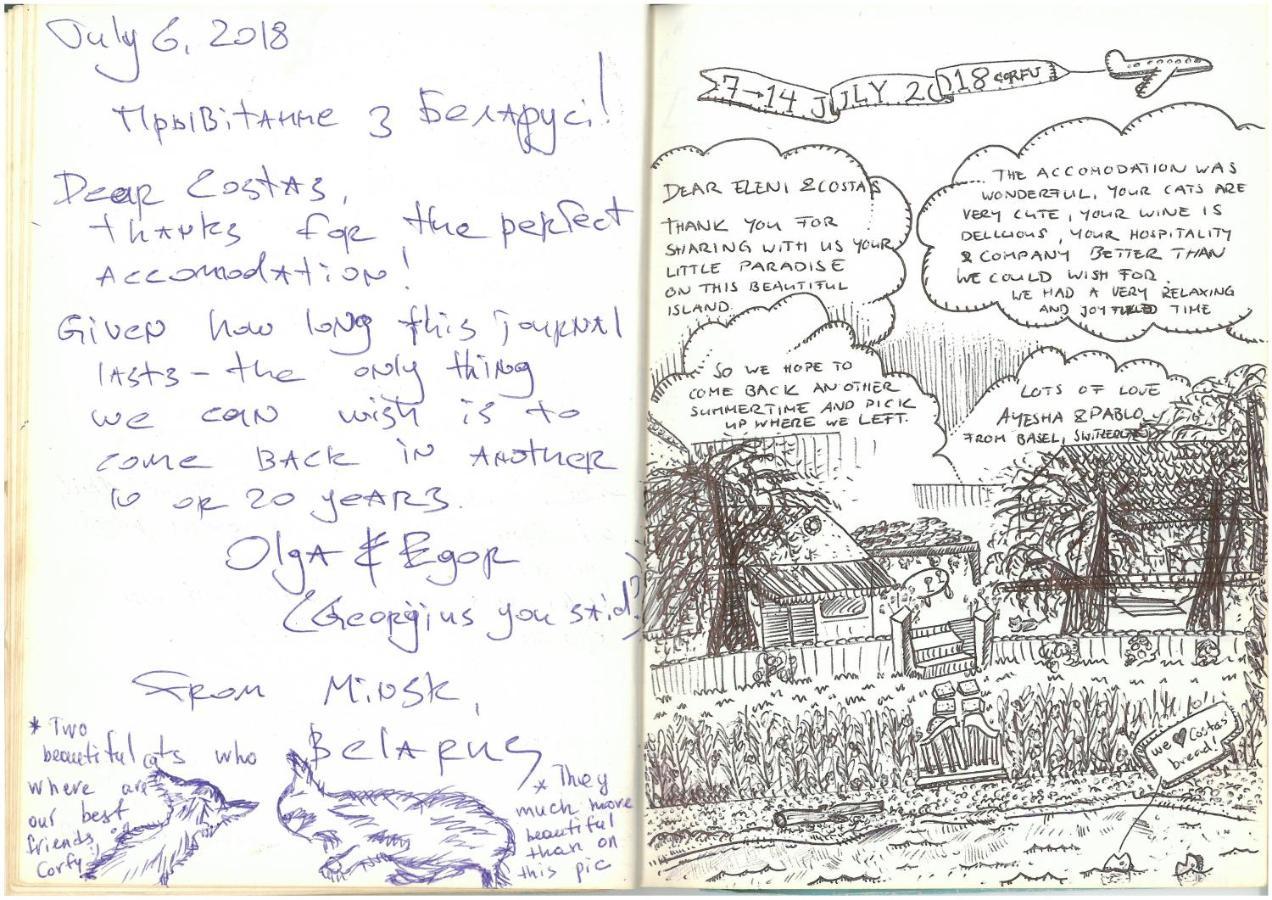 July 6, 2018
Прывітанне з Беларусі!
Dear Costas,
thanks for the perfect
accomodation!
Given how long this journal
lasts – the only thing
we can wish is to
come back in another
10 or 20 years.
Olga & Egor
(Georgius you said?)
From Minsk,
Belarus
* Two
beautiful cats who
where are
our best
friends,
Corfy
* They
much more
beautiful
than on
this pic
7→14 JULY 2018 CORFU
DEAR ELENI & COSTAS
THANK YOU FOR
SHARING WITH US YOUR
LITTLE PARADISE
ON THIS BEAUTIFUL
ISLAND.
THE ACCOMODATION WAS
WONDERFUL, YOUR CATS ARE
VERY CUTE, YOUR WINE IS
DELICIOUS, YOUR HOSPITALITY
& COMPANY BETTER THAN
WE COULD WISH FOR.
WE HAD A VERY RELAXING
AND JOYFULED TIME
SO WE HOPE TO
COME BACK ANOTHER
SUMMERTIME AND PICK
UP WHERE WE LEFT.
LOTS OF LOVE
AYESHA & PABLO
FROM BASEL, SWITHERLAND
We ♥ Costas'
bread!